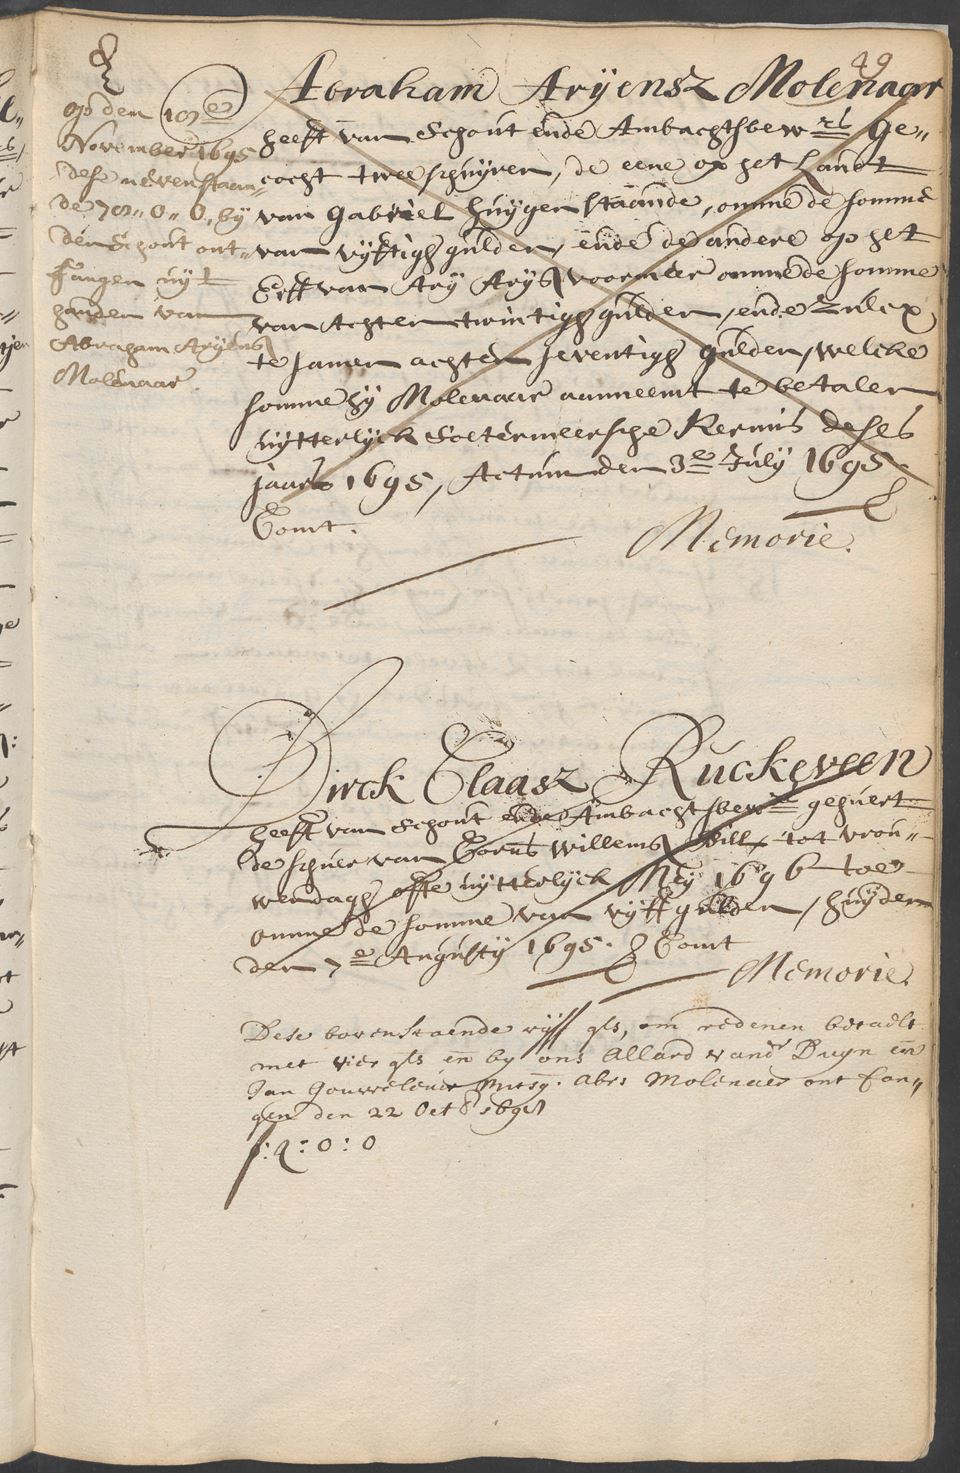 49
op den 10en
November 1695
dese nevenstaen-
de 78 " 0 " 0, by
den Schout ont-
fangen uijt
handen van
Abraham Arijens
Molenaar.
Abraham Arijensz Molenaar
heeft van Schout ende Ambachtsbew.rs ge-
cocht twee schuijren, de eene op het Landt
van Gabriel Huijgen staande, omme de somme
van vijftigh gulden, ende de andere op het
Erff van Arij Arijs Voormeer omme de somme
van Achten twintigh gulden, ende zulcx
te samen achten seventigh gulden, welcke
somme hij Molenaar aanneemt te betalen
uijtterlijck Soetermeersche Kermis deses
jaars 1695, Actum den 3e Julij 1695.
Comt.
Memorie.
Dirck Claasz Ruckeveen
heeft van Schout ende Ambachtsbew.rs gehuert
de schuer van Corns Willems tot vrou-
wendagh offte uijtterlijck Meij 1696 toe
omme de somme van vijff gulden, huijden
den 7e Augustij 1695. Comt
Memorie.
Dese bovenstaende vijff gls, om redenen betaelt
met vier gls en by ons Allard vandr Duyn en
Jan Gouweleeuw mitsg. Abrs Molenaer ontfan-
gen den 22 Octb
f: 4 : 0 : 0